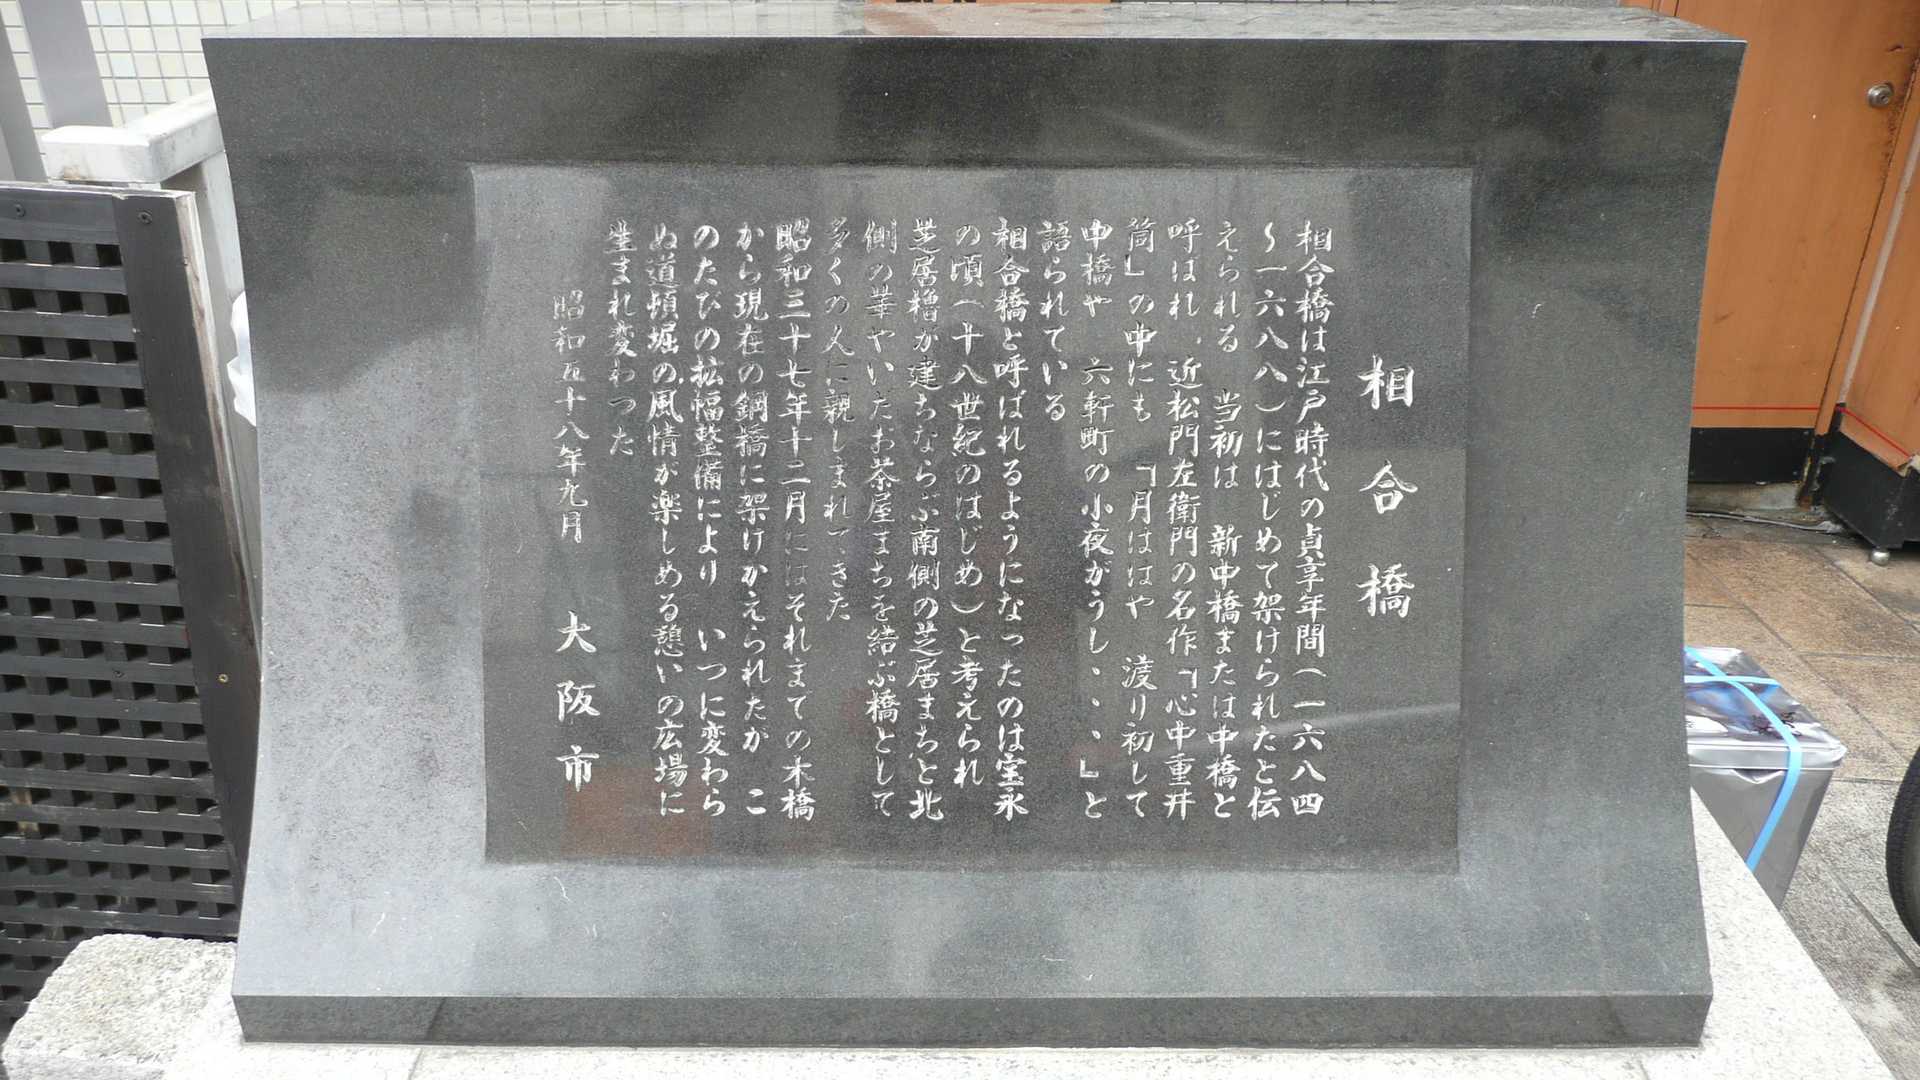 相合橋
相合橋は江戸時代の貞享年間(一六八四
〜一六八八)にはじめて架けられたと伝
えられる 当初は 新中橋または中橋と
呼ばれ、近松門左衛門の名作「心中重井
筒」の中にも 「月ははや 渡り初して
中橋や 六軒町の小夜がうし、、、」と
語られている
相合橋と呼ばれるようになったのは宝永
の頃(十八世紀のはじめ)と考えられ
芝居櫓が建ちならぶ南側の芝居まちと北
側の華やいだお茶屋まちを結ぶ橋として
多くの人に親しまれてきた
昭和三十七年十二月にはそれまでの木橋
から現在の鋼橋に架けかえられたが こ
のたびの拡幅整備により いつに変わら
ぬ道頓堀の風情が楽しめる憩いの広場に
生まれ変わった
昭和五十八年九月 大阪市